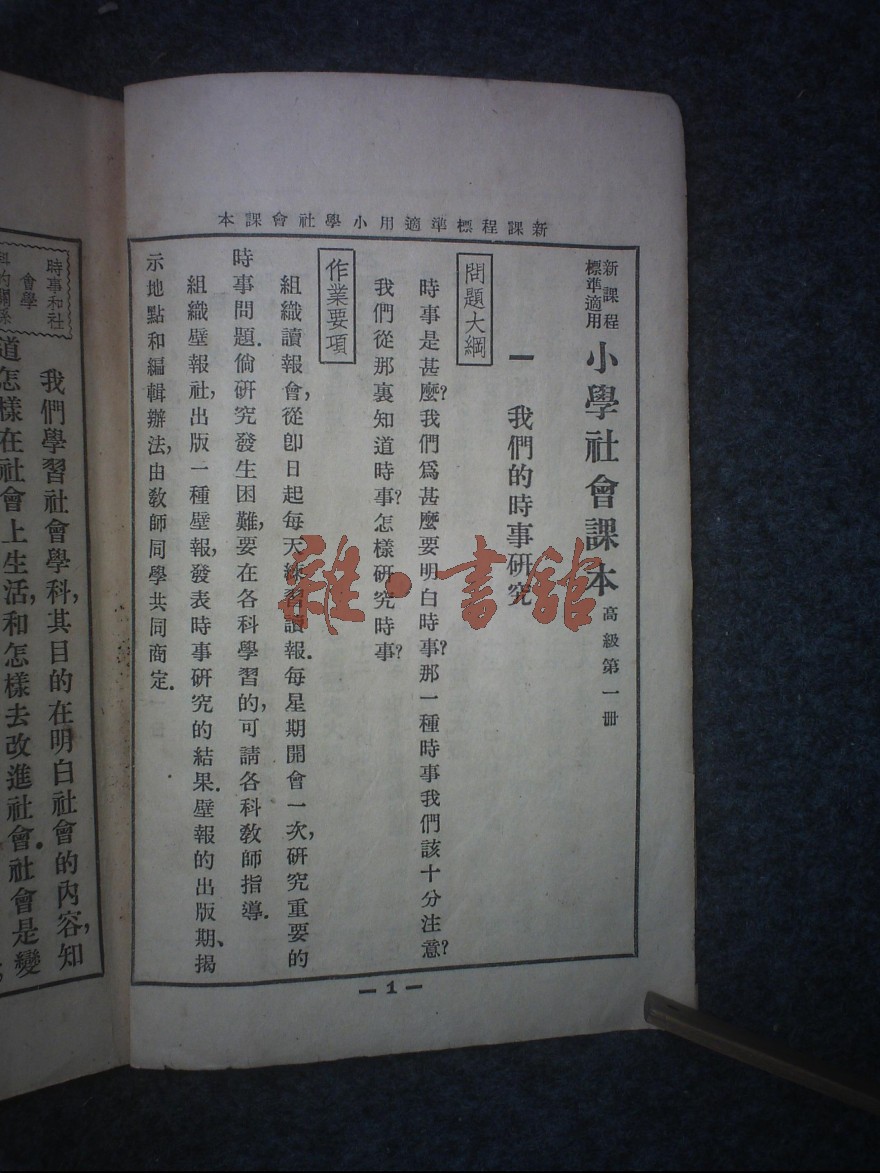 新課程標準適用小學社會課本
新課程
標準適用
小學社會課本 高級第一冊
一 我們的時事研究
問題大綱
時事是甚麼?我們爲甚麼要明白時事?那一種時事我們該十分注意?
我們從那裏知道時事?怎樣研究時事?
作業要項
組織讀報會,從卽日起每天練習讀報.每星期開會一次,研究重要的
時事問題.倘研究發生困難,要在各科學習的,可請各科教師指導.
組織壁報社,出版一種壁報,發表時事研究的結果.壁報的出版期、揭
示地點和編輯辦法,由教師同學共同商定.
— 1 —
時事和社
會學
科的關係
我們學習社會學科,其目的在明白社會的內容,知
道怎樣在社會上生活,和怎樣去改進社會.社會是變
雜·書館